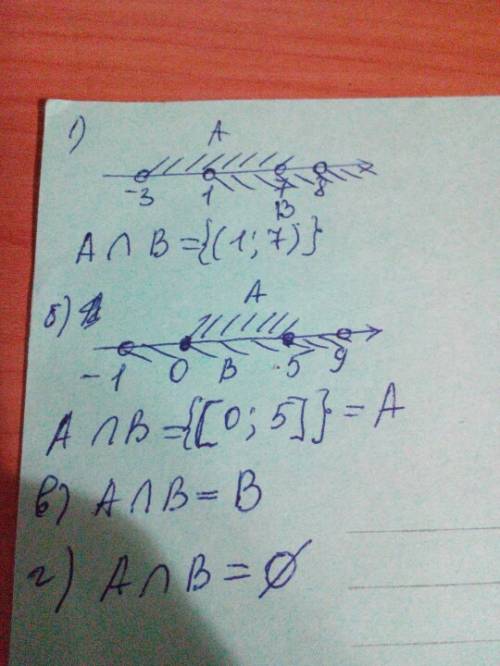 1)
A
-3 1 7 8
B
A ∩ B = {(1; 7)}
б)
A
-1 0 B 5 9
A ∩ B = {[0; 5]} = A
в) A ∩ B = B
г) A ∩ B = ∅